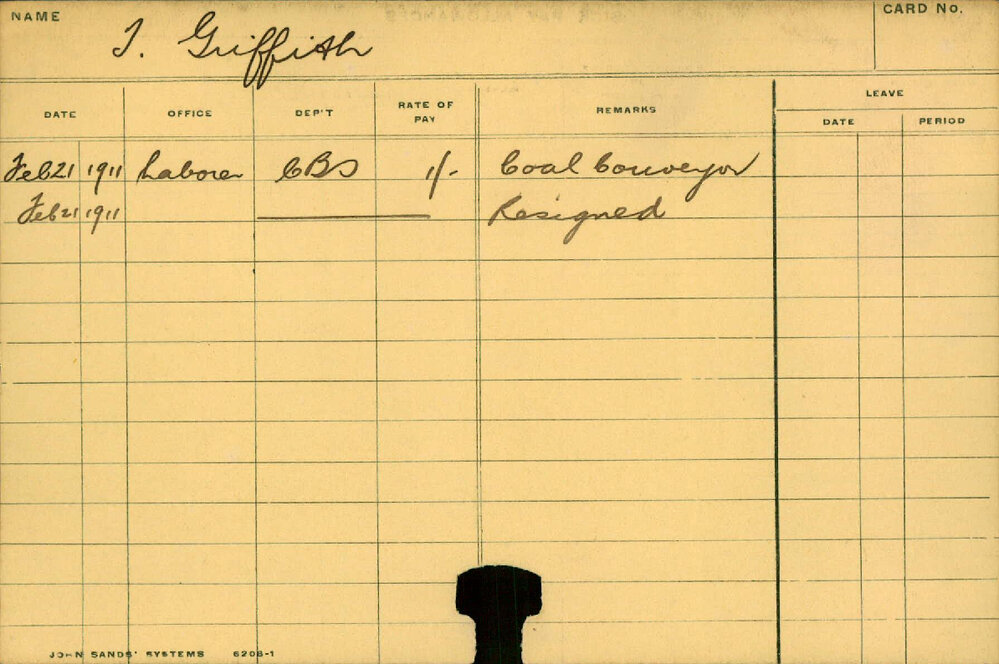 NAME
T. Griffith
CARD No.
DATE OFFICE DEP'T RATE OF PAY REMARKS LEAVE
DATE PERIOD
Feb 21 1911 Laborer CBS 1/- Coal Conveyor
Feb 21 1911 Resigned
JOHN SANDS' SYSTEMS 6206-1